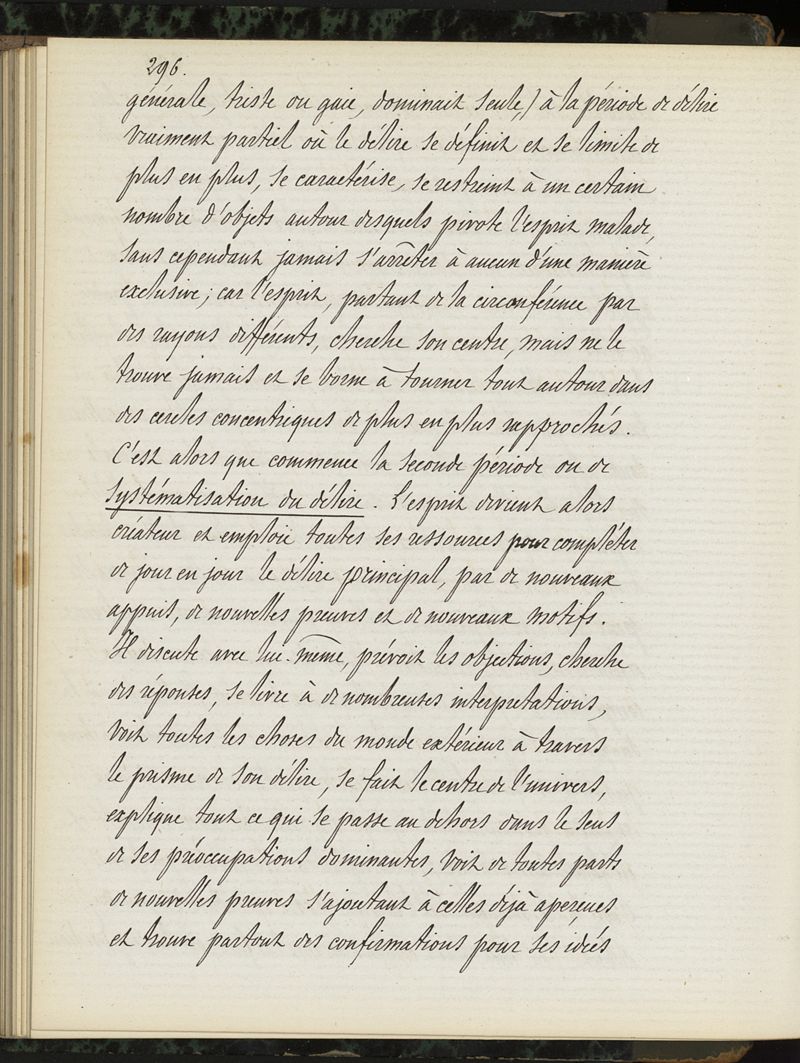 296.
générale, triste ou gaie, dominait seule,) à la période de délire
vraiment partiel où le délire se définit et se limite de
plus en plus, se caractérise, se restreint à un certain
nombre d'objets autour desquels pivote l'esprit malade,
sans cependant jamais s'arrêter à aucun d'une manière
exclusive; car l'esprit, partant de la circonférence par
des rayons différents, cherche son centre, mais ne le
trouve jamais et se borne à tourner tout autour dans
des cercles concentriques de plus en plus rapprochés.
C'est alors que commence la seconde période ou de
systématisation du délire. L'esprit devient alors
créateur et emploie toutes ses ressources pour compléter
de jour en jour le délire principal, par de nouveaux
appuis, de nouvelles preuves et de nouveaux motifs.
Il discute avec lui-même, prévoit les objections, cherche
des réponses, se livre à de nombreuses interprétations,
voit toutes les choses du monde extérieur à travers
le prisme de son délire, se fait le centre de l'univers,
explique tout ce qui se passe au dehors dans le sens
de ses préoccupations dominantes, voit de toutes parts
de nouvelles preuves s'ajoutant à celles déjà aperçues
et trouve partout des confirmations pour ses idées